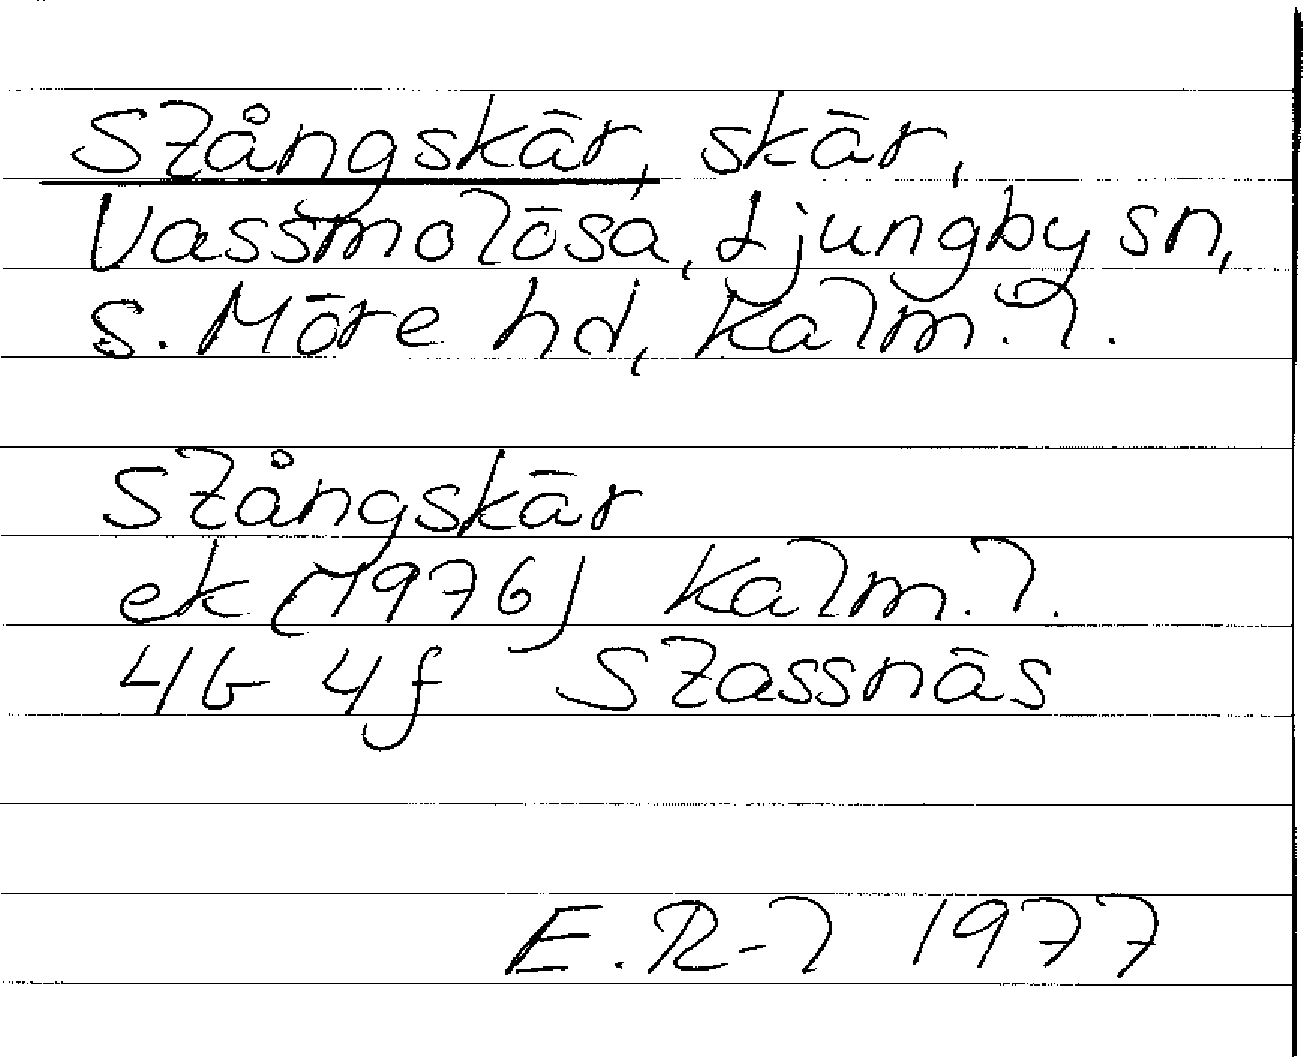 Slångskär, skär,
Vassmolösa, Ljungby sn,
S. Möre hd, Kalm. l.
Slångskär
ek (1976) Kalm. l.
4G 4f Slassnäs
E. R-l 1977